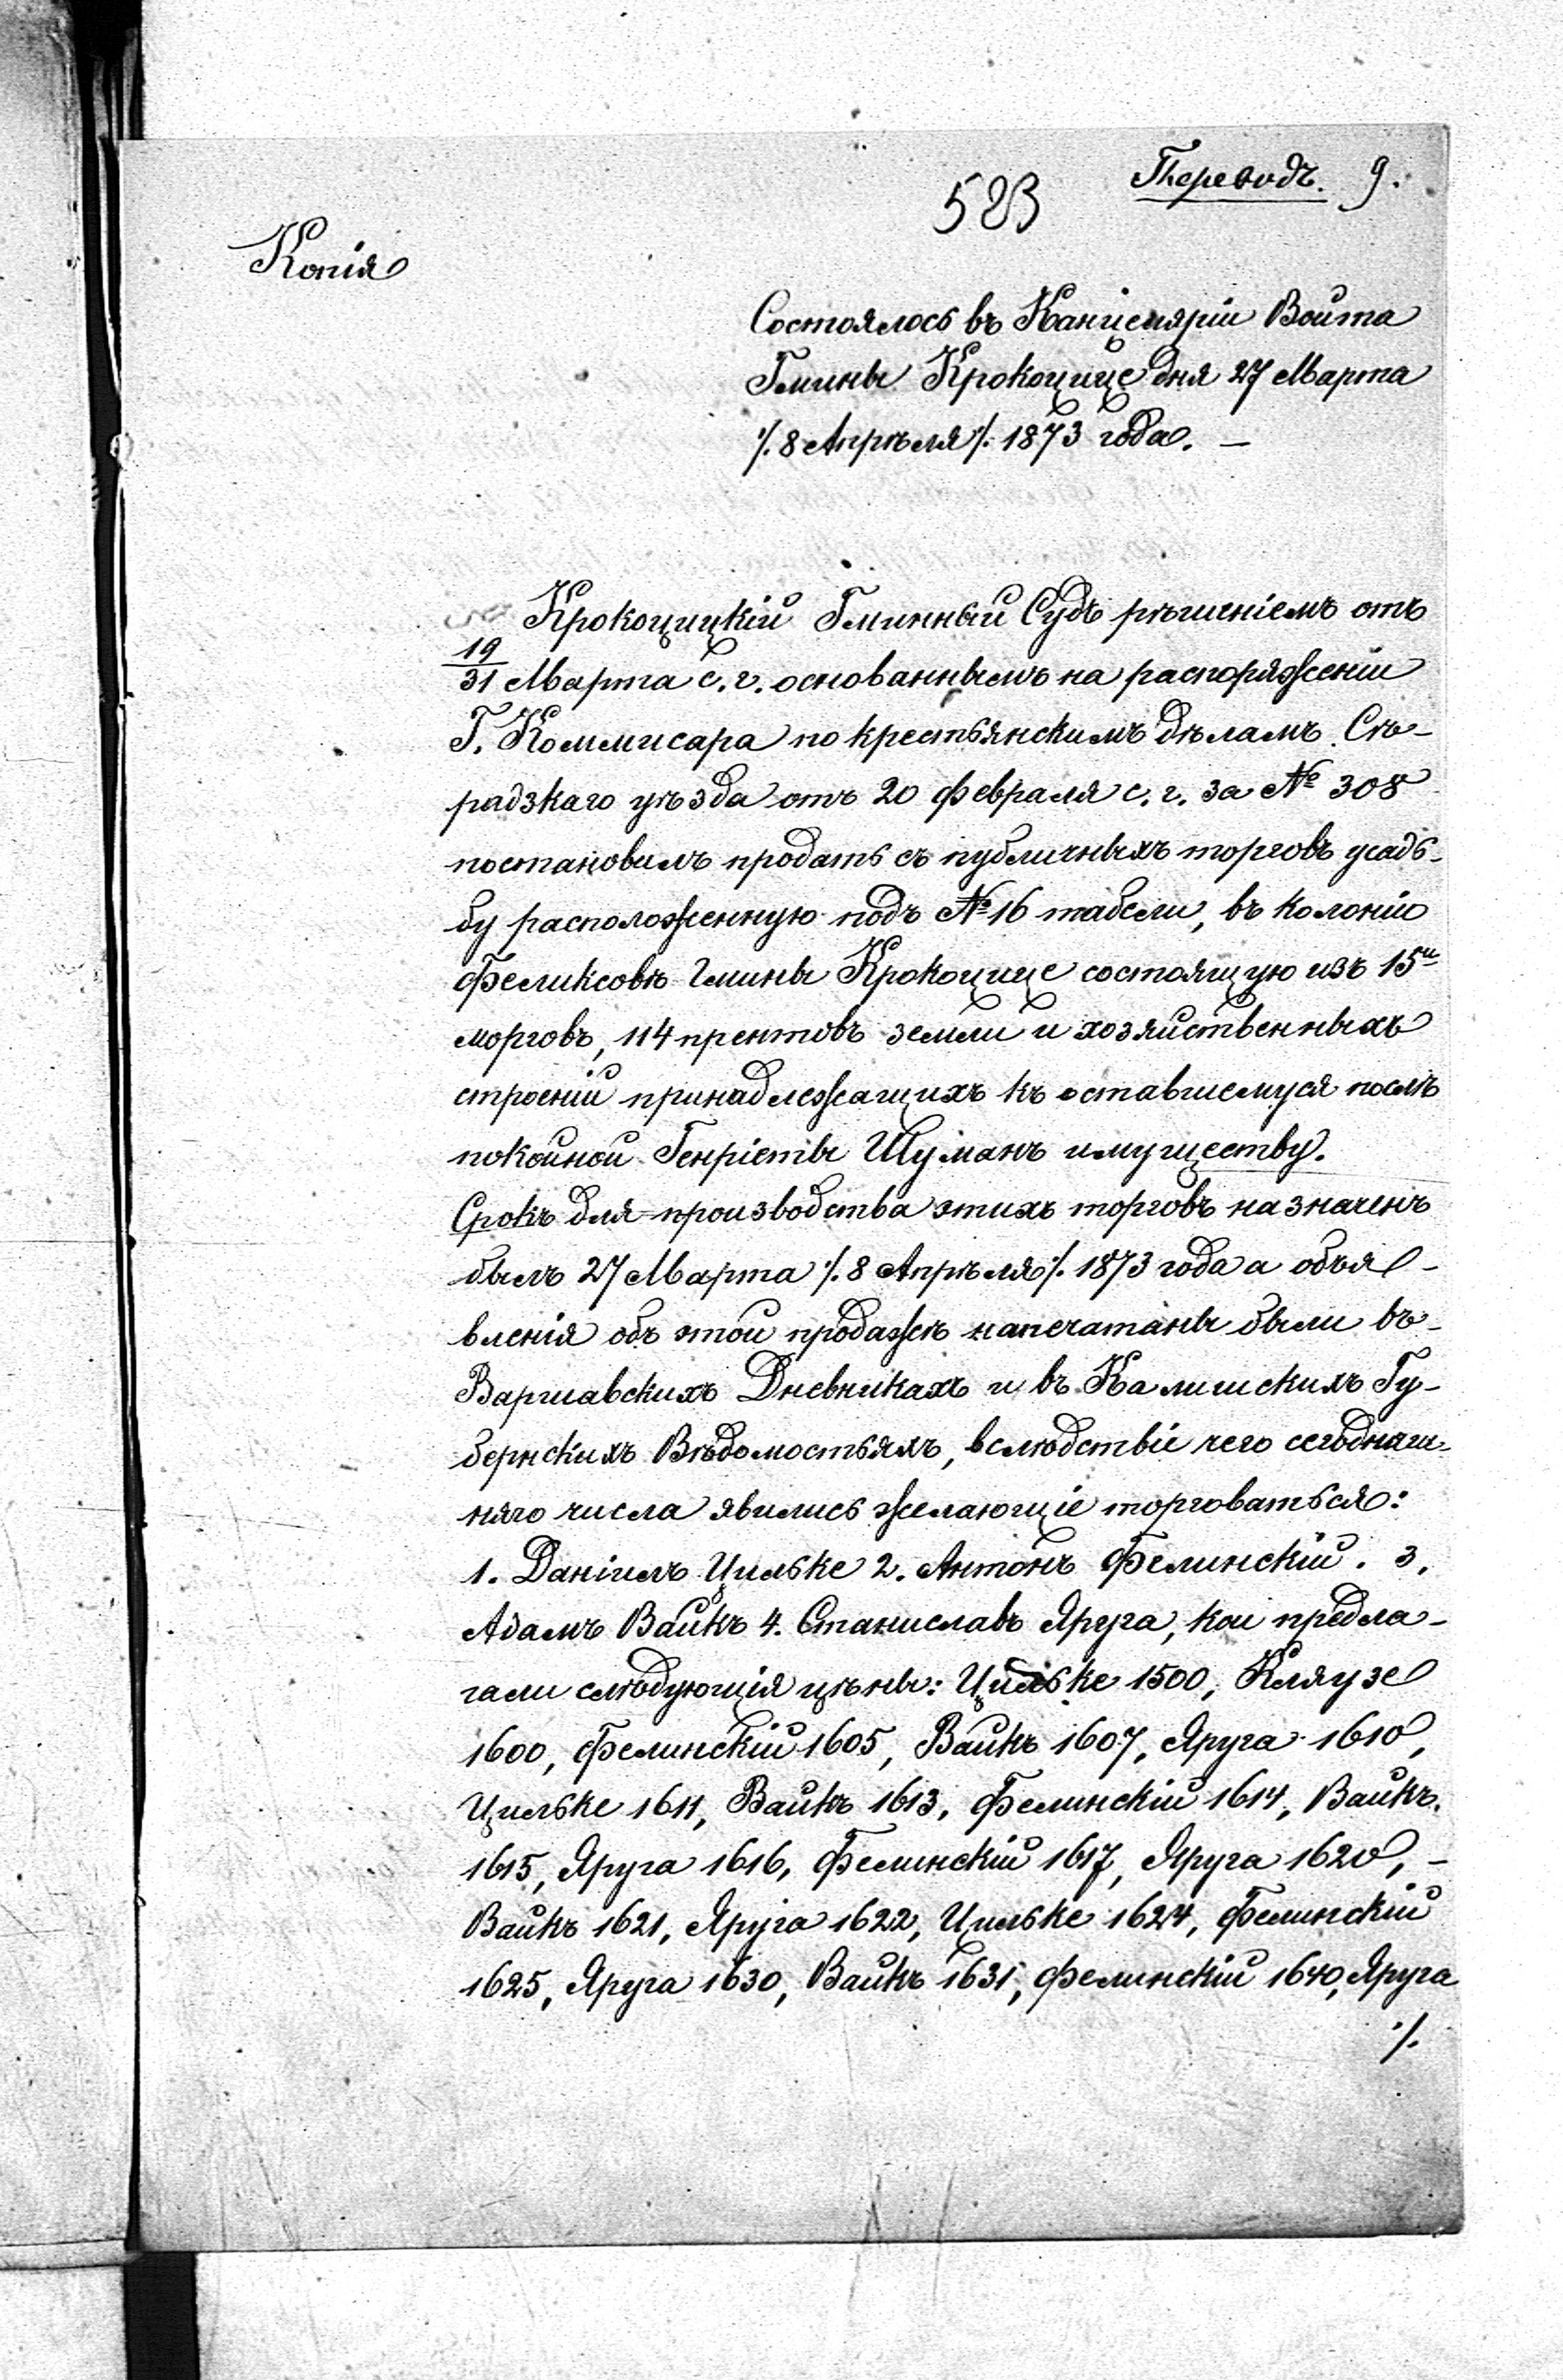 Переводъ. 9.
523
Копія
Состоялось въ Канцеляріи Войта
Гмины Крокоцице дня 27 Марта
/. 8 Апрѣля /. 1873 года. —
Крокоцицкій Гминный Судъ рѣшеніемъ отъ
19/31 Марта с. г. основаннымъ на распоряженіи
Г. Коммисара по крестьянскимъ дѣламъ Сѣ-
радзкаго уѣзда отъ 20 Февраля с. г. за № 308
постановилъ продать съ публичныхъ торговъ усадь-
бу расположенную подъ № 16 табели, въ колоніи
Феликсовъ гмины Крокоцице состоящую изъ 15и
морговъ, 114 прентовъ земли и хозяйственныхъ
строеній принадлежащихъ къ оставшемуся послѣ
покойной Генріеты Шуманъ имуществу.
Срокъ для производства этихъ торговъ назначенъ
былъ 27 Марта /. 8 Апрѣля /. 1873 года а объя-
вленія объ этой продажѣ напечатаны были въ
Варшавскихъ Дневникахъ и въ Калишскихъ Гу-
бернскихъ Вѣдомостьяхъ, вслѣдствіе чего сегоднеш-
няго числа явились желающіе торговаться:
1. Даніилъ Цильке 2. Антонъ Фелинскій. 3.
Адамъ Вайкъ 4. Станиславъ Яруга, кои предла-
гали слѣдующія цѣны: Цильке 1500, Кляузе
1600, Фелинскій 1605, Вайкъ 1607, Яруга 1610,
Цильке 1611, Вайкъ 1613, Фелинскій 1614, Вайкъ
1615, Яруга 1616, Фелинскій 1617, Яруга 1620, —
Вайкъ 1621, Яруга 1622, Цильке 1624, Фелинскій
1625, Яруга 1630, Вайкъ 1631, Фелинскій 1640, Яруга
/.